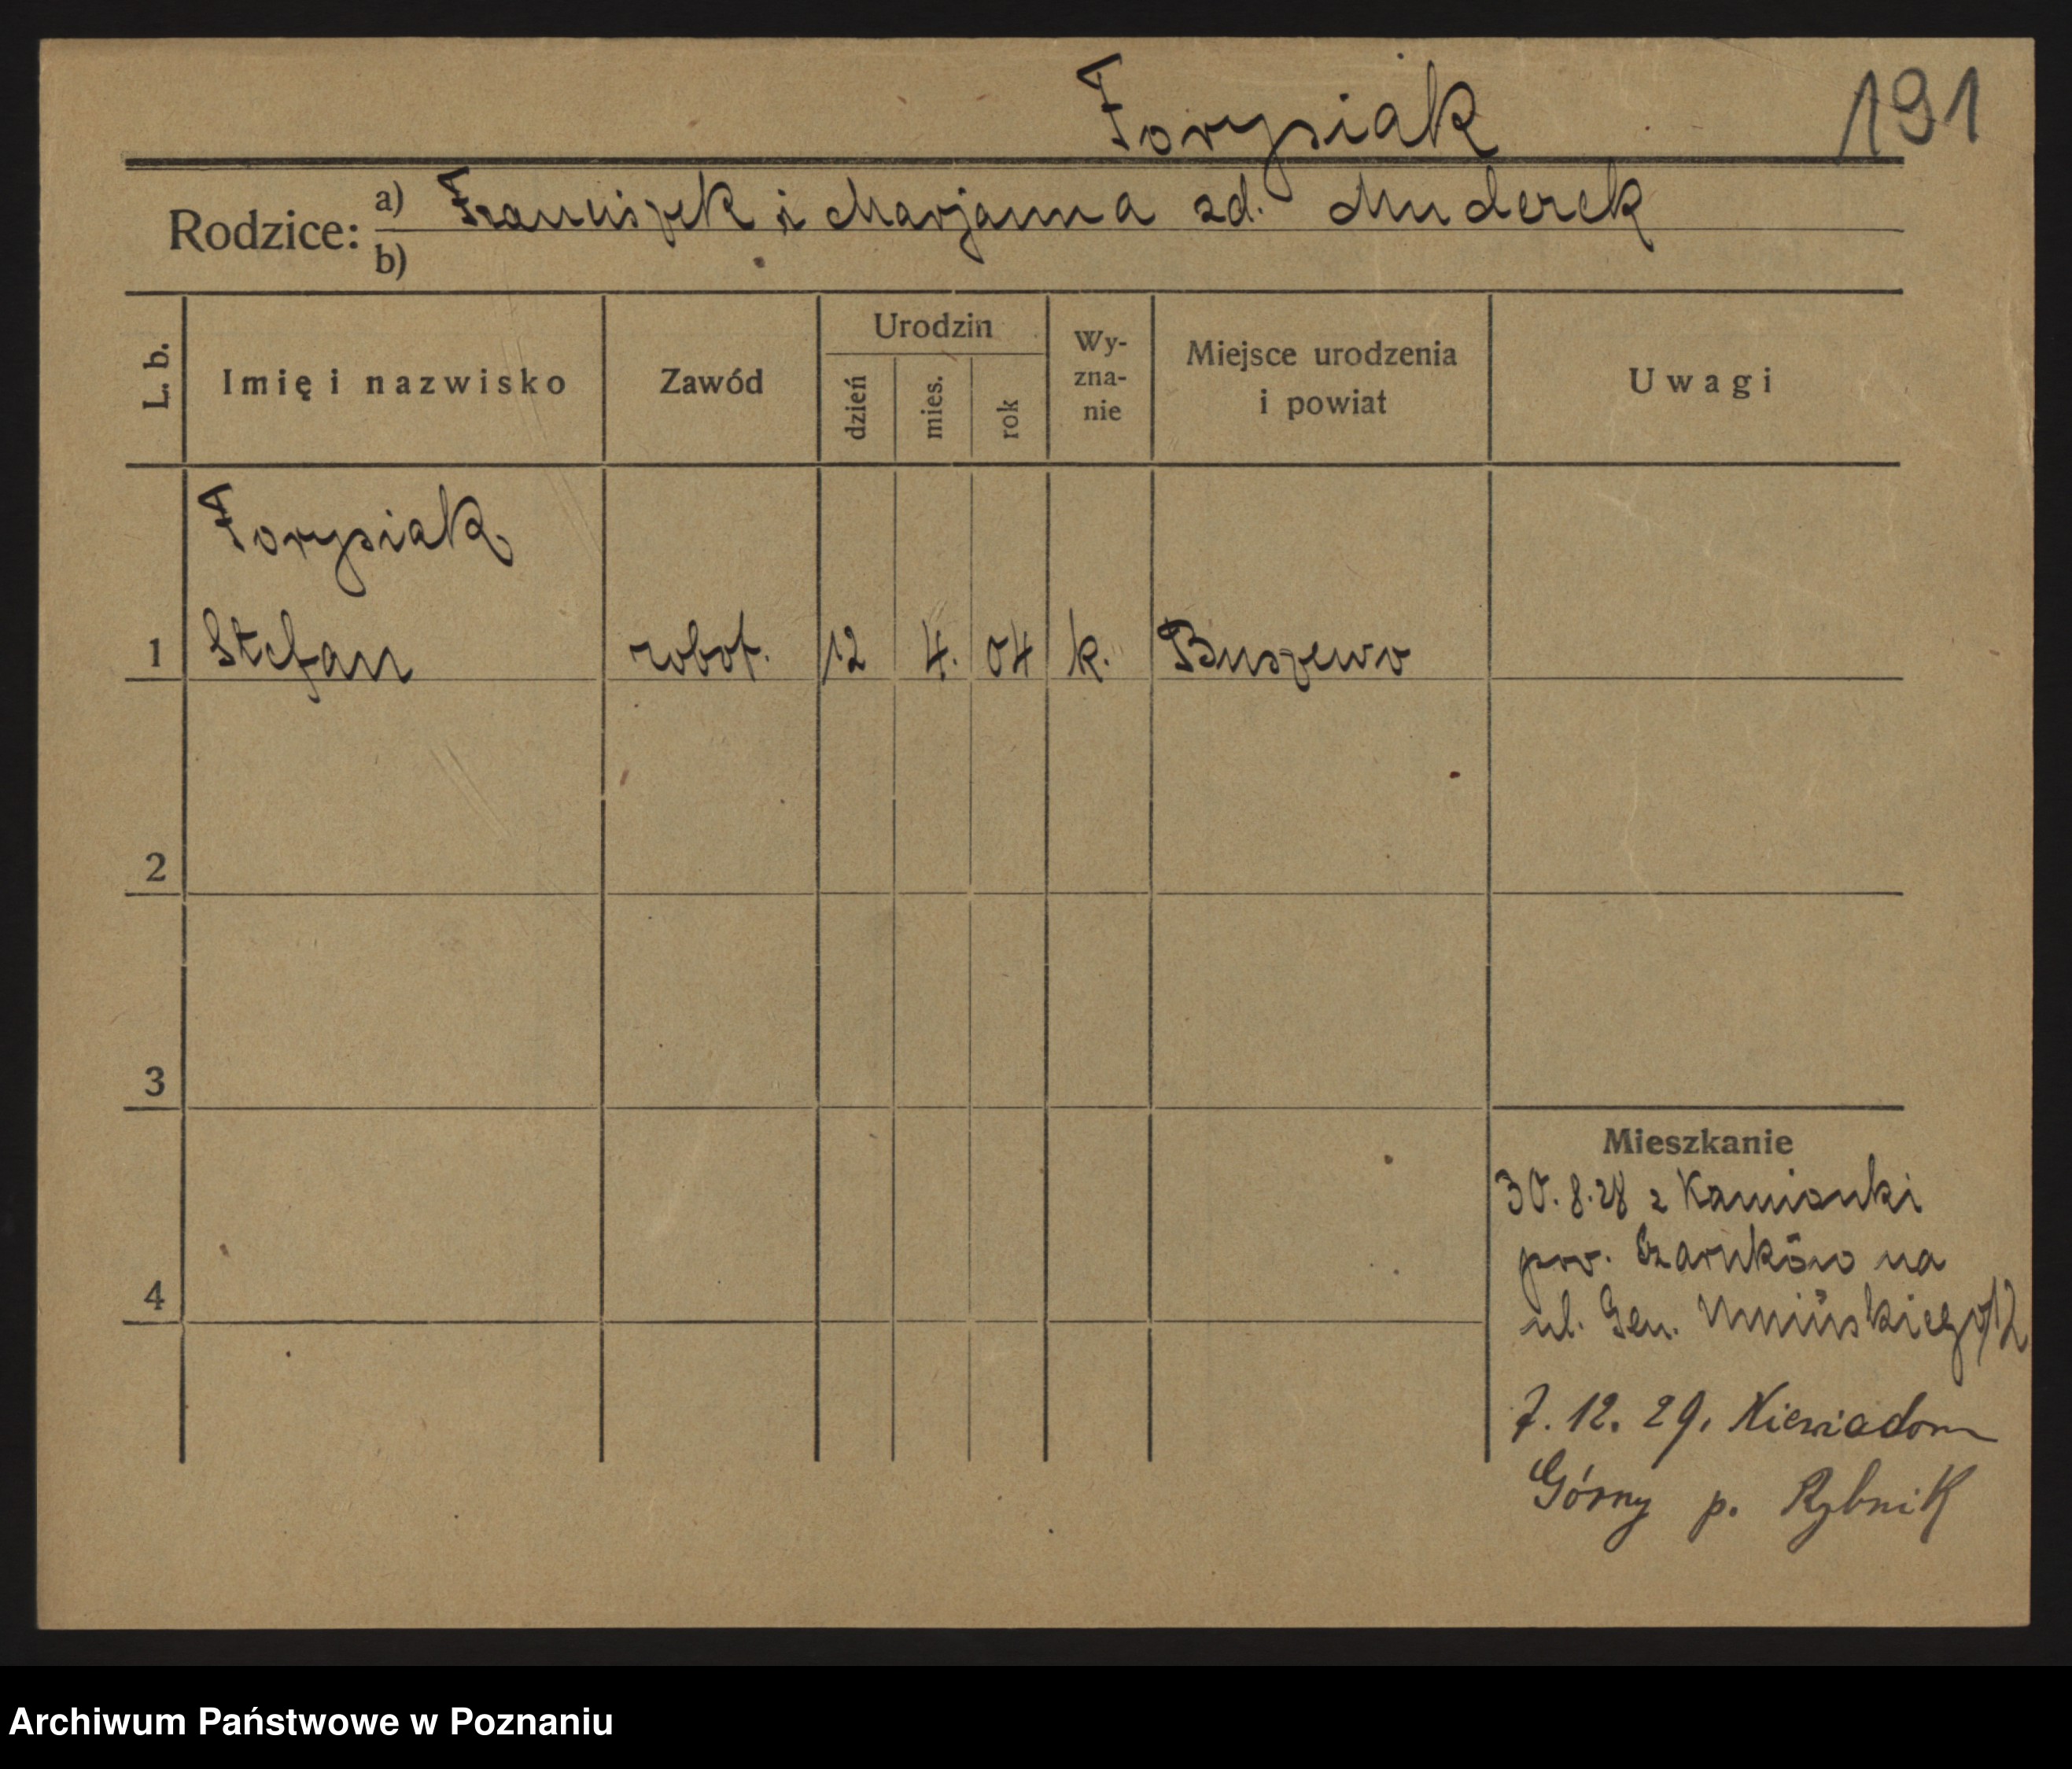 Forysiak 191
Rodzice: a) Franciszek i Marjanna zd. Muderek
b)
L. b. Imię i nazwisko Zawód Urodzin dzień mies. rok Wy-zna-nie Miejsce urodzenia i powiat Uwagi
Forysiak
1 Stefan robot. 12 4. 04 k. Buszewo
2
3
Mieszkanie
30. 8. 28 z Kamionki
pow. Czarnków na
4
ul. Gen. Umińskiego 12
7. 12. 29. Niewiadom
Górny p. Rybnik
Archiwum Państwowe w Poznaniu